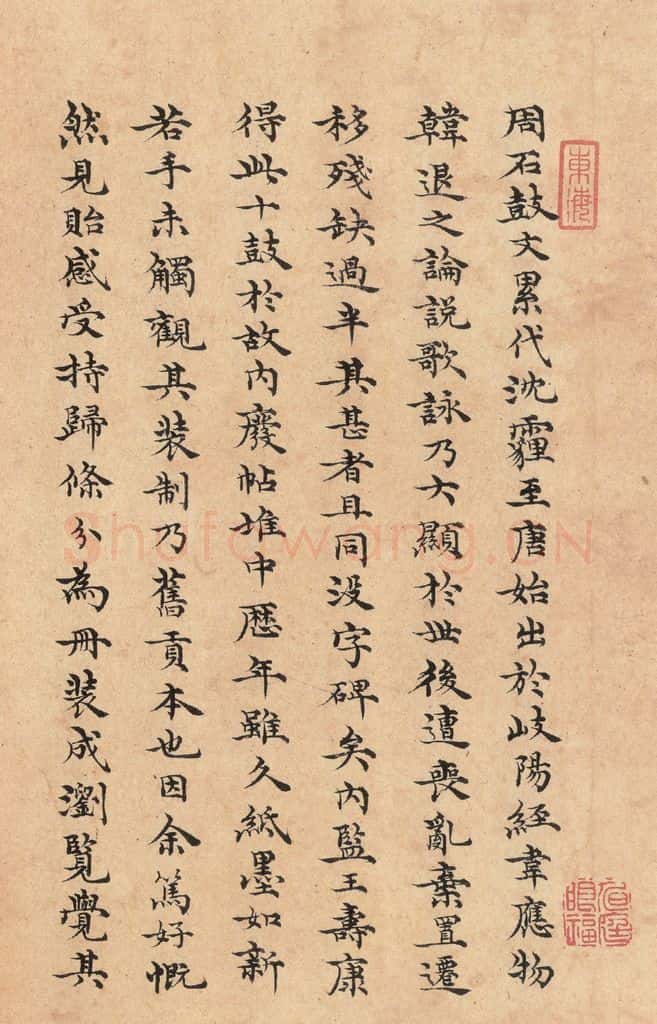 周石鼓文累代沈霾至唐始出於岐陽經韋應物
韓退之論説歌詠乃大顯於世後遭喪亂棄置遷
移殘缺過半其甚者且同没字碑矣内監王壽康
得此十鼓於故内廢帖堆中歷年雖久紙墨如新
若手未觸觀其装制乃舊貢本也因余篤好慨
然見貽感受持歸條分為冊装成瀏覽覺其
東海
眼福
Shufawang.CN